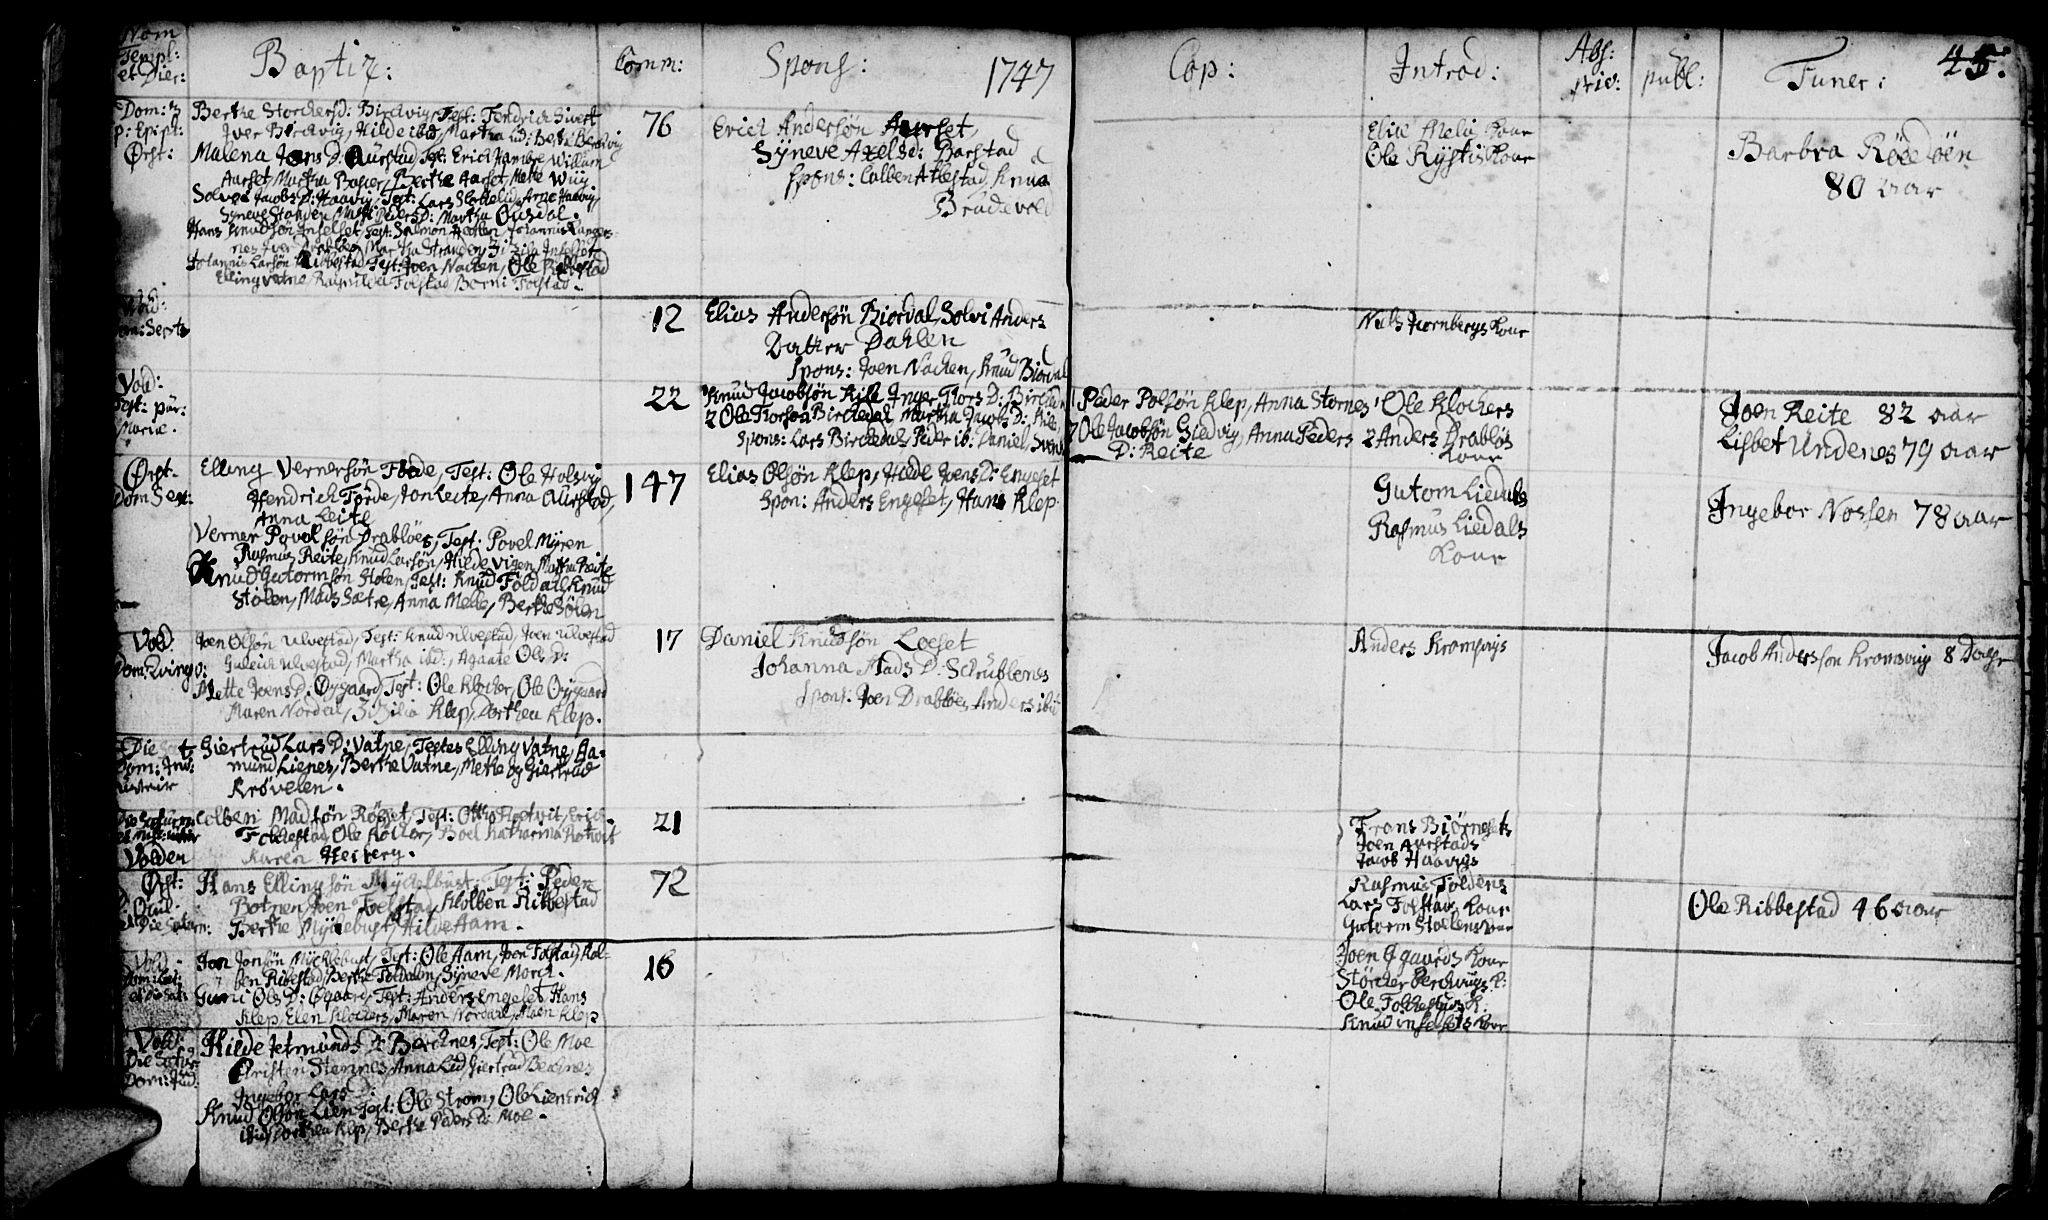 Nom
Templ:
et Dier:
Baptiz:
Comm:
Spons:
1747
Cop:
Introd:
Abs:
priv:
publ:
Funer:
45.
Dom: 3
p: Epiph:
Ørst:
Berthe Storchersd: Birchvig, Test: Fendrich Sivert
Iver Birchvig, Hilde ibd, Martha Lid: Berta Berchvig
Malena Jons D. Aurstad Test: Erich Jambre Willum
Aarset, Martha Basier, Berthe Aarset, Mette Wiig
Solvei Jacobs D: Haavig, Test: Lars Slettelid, Arne Haavig,
Syneve Standen, Peders D: Martha Ousdal.
Hans Knudsøn Inselset Test: Salmon Johannis
nes Iver Drabløs, Martha Stranden, Zizilia Inselset
Johannis Larsøn Ribbestad, Test: Joen Nacken, Ole Ribbestad
Elling Vatne, Ragnilda Folstad Borni Folstad.
76
Erich Andersøn Aarset,
Syneve Axelsd: Barstad
Spons: Colben Allestad, Knud
Brudevold
Elise Melu Kone
Ole Rystis Kone
Barbra Røedøen
80 aar
Vold:
Dom: Sept:
12
Elias Andersøn Biordal, Solvi Anders
Datter Dahlen
Spons: Joen Nacken, Knud Biordal
Niels Kornbergs Kone
Vold:
Fest: pur:
Mariæ.
22
Knud Jacobsøn Kile Inger Thors D: Birchedal
2 Ole Thorsøn Birchedal Martha Jacobs D: Kile,
Spons: Lars Birchedal, Peder ib: Daniel,
1 Peder Polsøn Klep, Anna Stornes
2 Ole Jacobsøn Giedvig, Anna Peders
D: Reite
1 Ole Klockers
2 Anders Drabløs
Kone
Joen Reite 82 aar
Lisbet Undenes 79 aar
Ørst.
Dom Sex:
Elling Vernersøn Førde, Test: Ole Holsvig
Hendrich Førde, Jon Leite, Anna Aurstad,
Anna Leite
Verner Povelsøn Drabløes, Test: Povel Myren
Rasmus Reite, Knud Larsøn, Hilde Vigen Martha Reite
Knud Gutormsøn Stolen, Test: Knud Foldal Knud
Stolen, Mads Sætre, Anna Melle, Berthe Solen
147
Elias Olsøn Klep, Hilde Joens D: Engeset
Spon: Anders Engeset, Hans Klep.
Gutom Liedals
Rasmus Liedals
Kone
Ingebor Nossen 78 aar
Vold
Dom: Qvinqo:
Joen Olsøn Ulvestad, Test: Knud Ulvestad, Joen Ulvestad
Guleich Ulvestad, Martha ibd:, Agaate Ols D:
Mette Joens D: Øygaard, Test: Ole Klocker, Ole Øygaard
Maren Nordal, Zizilia Klep, Dorthea Klep.
17
Daniel Knudsøn Løeset
Johanna Mads D: Schublenes
Spons: Joen Drabløes, Anders ibid
Anders Kromsvigs
Jacob Andersson Kromsvig 8 Dage
Die
Dom: Ind:
Giertrud Lars D: Vatne, Testes Elling Vatne, Aa-
mund Lienes, Berthe Vatne, Mette og Giertrud
Krøvelen.
Volden
Colben Madsøn Røyset, Test: Ottho Rotvit, Erich
Folchestad Ole Klocker, Boel Katharina Rotvit
Karen Heiberg.
21
Frans Biørnsets
Joen Aurstads
Jacob Haavigs
Ørst:
Hans Ellingsøn Myckelbust, Test: Peder
Botnen, Joen Folstad, Kolben Ribbestad
Berthe Myclebust, Hilde Aam.
72
Rasmus Foldens
Lars Folstads Kone
Gutorm Stolens
Ole Ribbestad 46 aar
Vold
Jon Jonsøn Mycklebust, Test: Ole Aam, Joen Folstad, Kol-
ben Ribestad, Berthe Foldalen, Syneve Morch.
Guni Ols D: Øgaard, Test: Anders Engeset, Hans
Klep, Elen Klockers, Maren Nordal, Maen Klep
16
Joen Øgaards Kone
Størcker Berchvigs K:
Ole Folchestads K:
Knud Inselsets Kone
Vold:
Dom: Jud.
Hilde Jetmunds D: Berchnes, Test: Ole Moe
Christen Stennes, Anna Lid, Giertrud Berchnes
Ingebor Lars D:
Knud Olsøn Lien Test: Ole Strøm, Ole Lien Erich
ibid Dorthea Klep, Berthe Peders D: Moe.